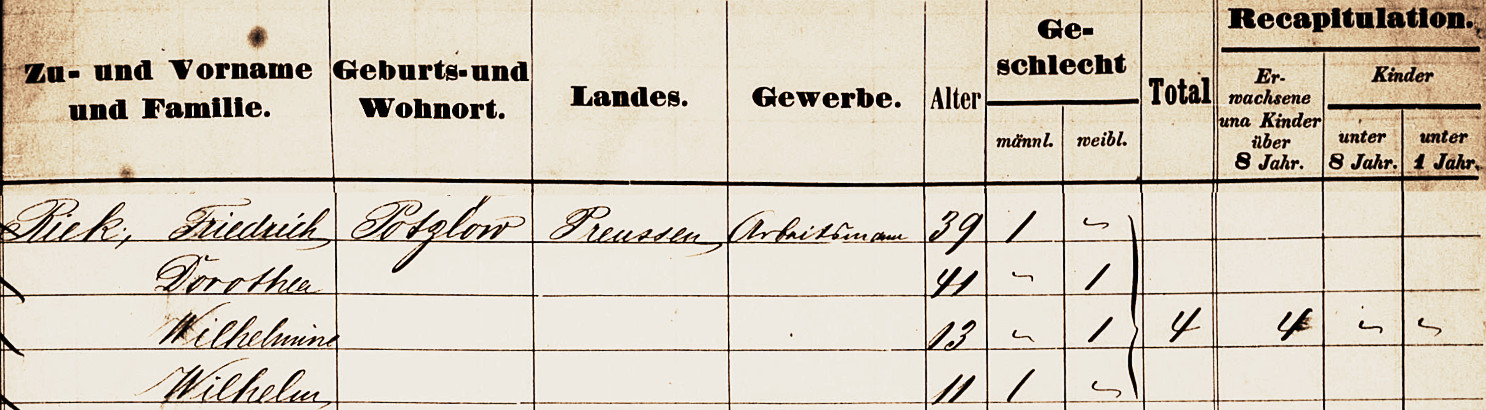 Zu- und Vorname und Familie. Geburts-und Wohnort. Landes. Gewerbe. Alter Ge-schlecht männl. weibl. Total Recapitulation. Er-wachsene una Kinder über 8 Jahr. Kinder unter 8 Jahr. unter 1 Jahr.
Riek, Friedrich Potzlow Preussen Arbeitsmann 39 1 "
Dorothea 41 " 1
Wilhelmine 13 " 1 4 4 " "
Wilhelm 11 1 "